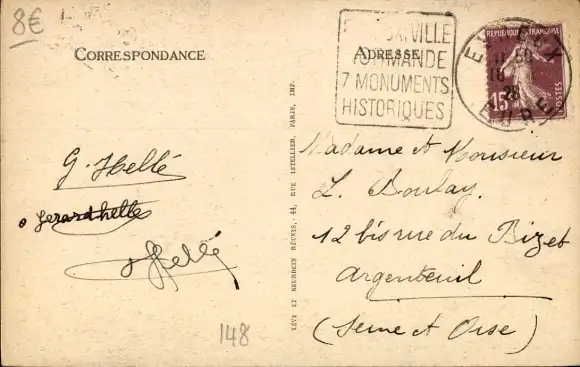 8€
CORRESPONDANCE
ADRESSE
VILLE
7 MONUMENTS
HISTORIQUES
REPUBLIQUE FRANÇAISE
15
POSTES
EVREUX
18
28
EURE
G. Hellé
Gerard helle
Hellé
148
LÉVY ET NEURDEIN RÉUNIS, 44, RUE LETELLIER, PARIS, IMP.
Madame et Monsieur
L. Boulay.
12 bis rue du Bizet
Argenteuil
(Seine et Oise)